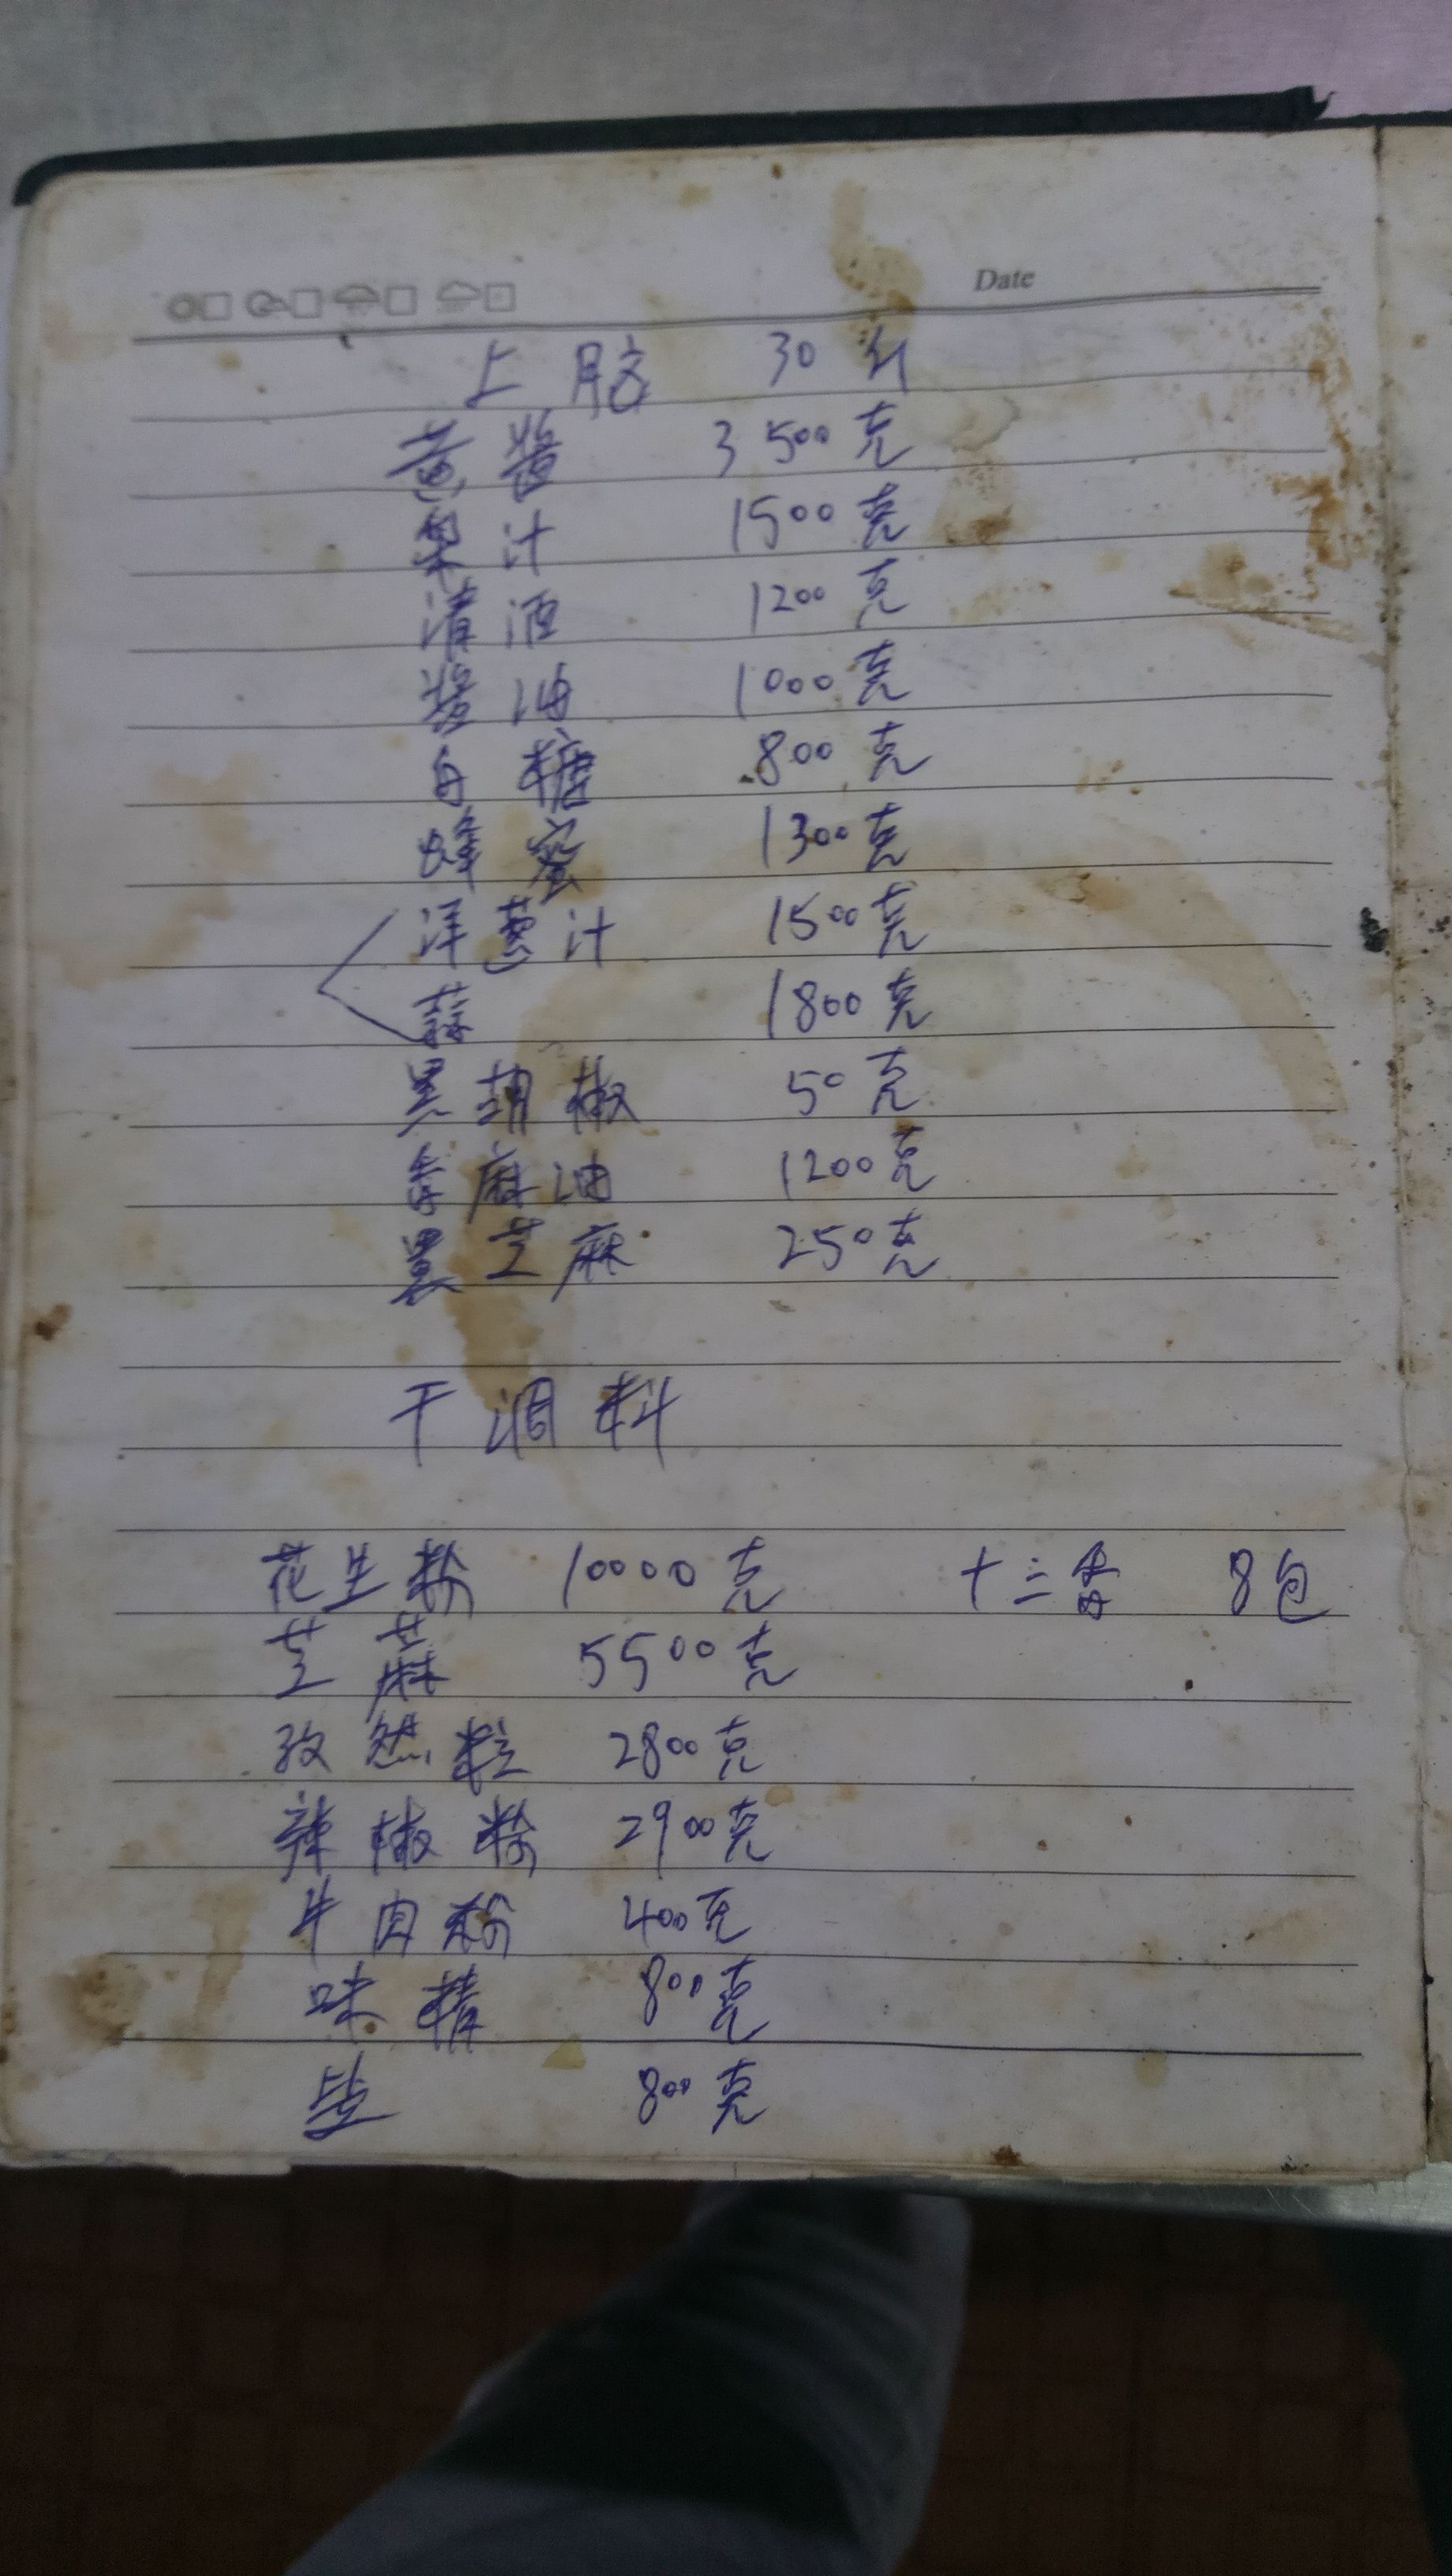 Date
上脑 30斤
葱酱 3500克
果汁 1500克
清酒 1200克
酱油 1000克
白糖 800克
蜂蜜 1300克
洋葱汁 1500克
蒜 1800克
黑胡椒 50克
麻油 1200克
黑芝麻 250克
干调料
花生粉 10000克 十三香 8包
芝麻 5500克
孜然粒 2800克
辣椒粉 2900克
牛肉粉 400克
味精 800克
盐 800克